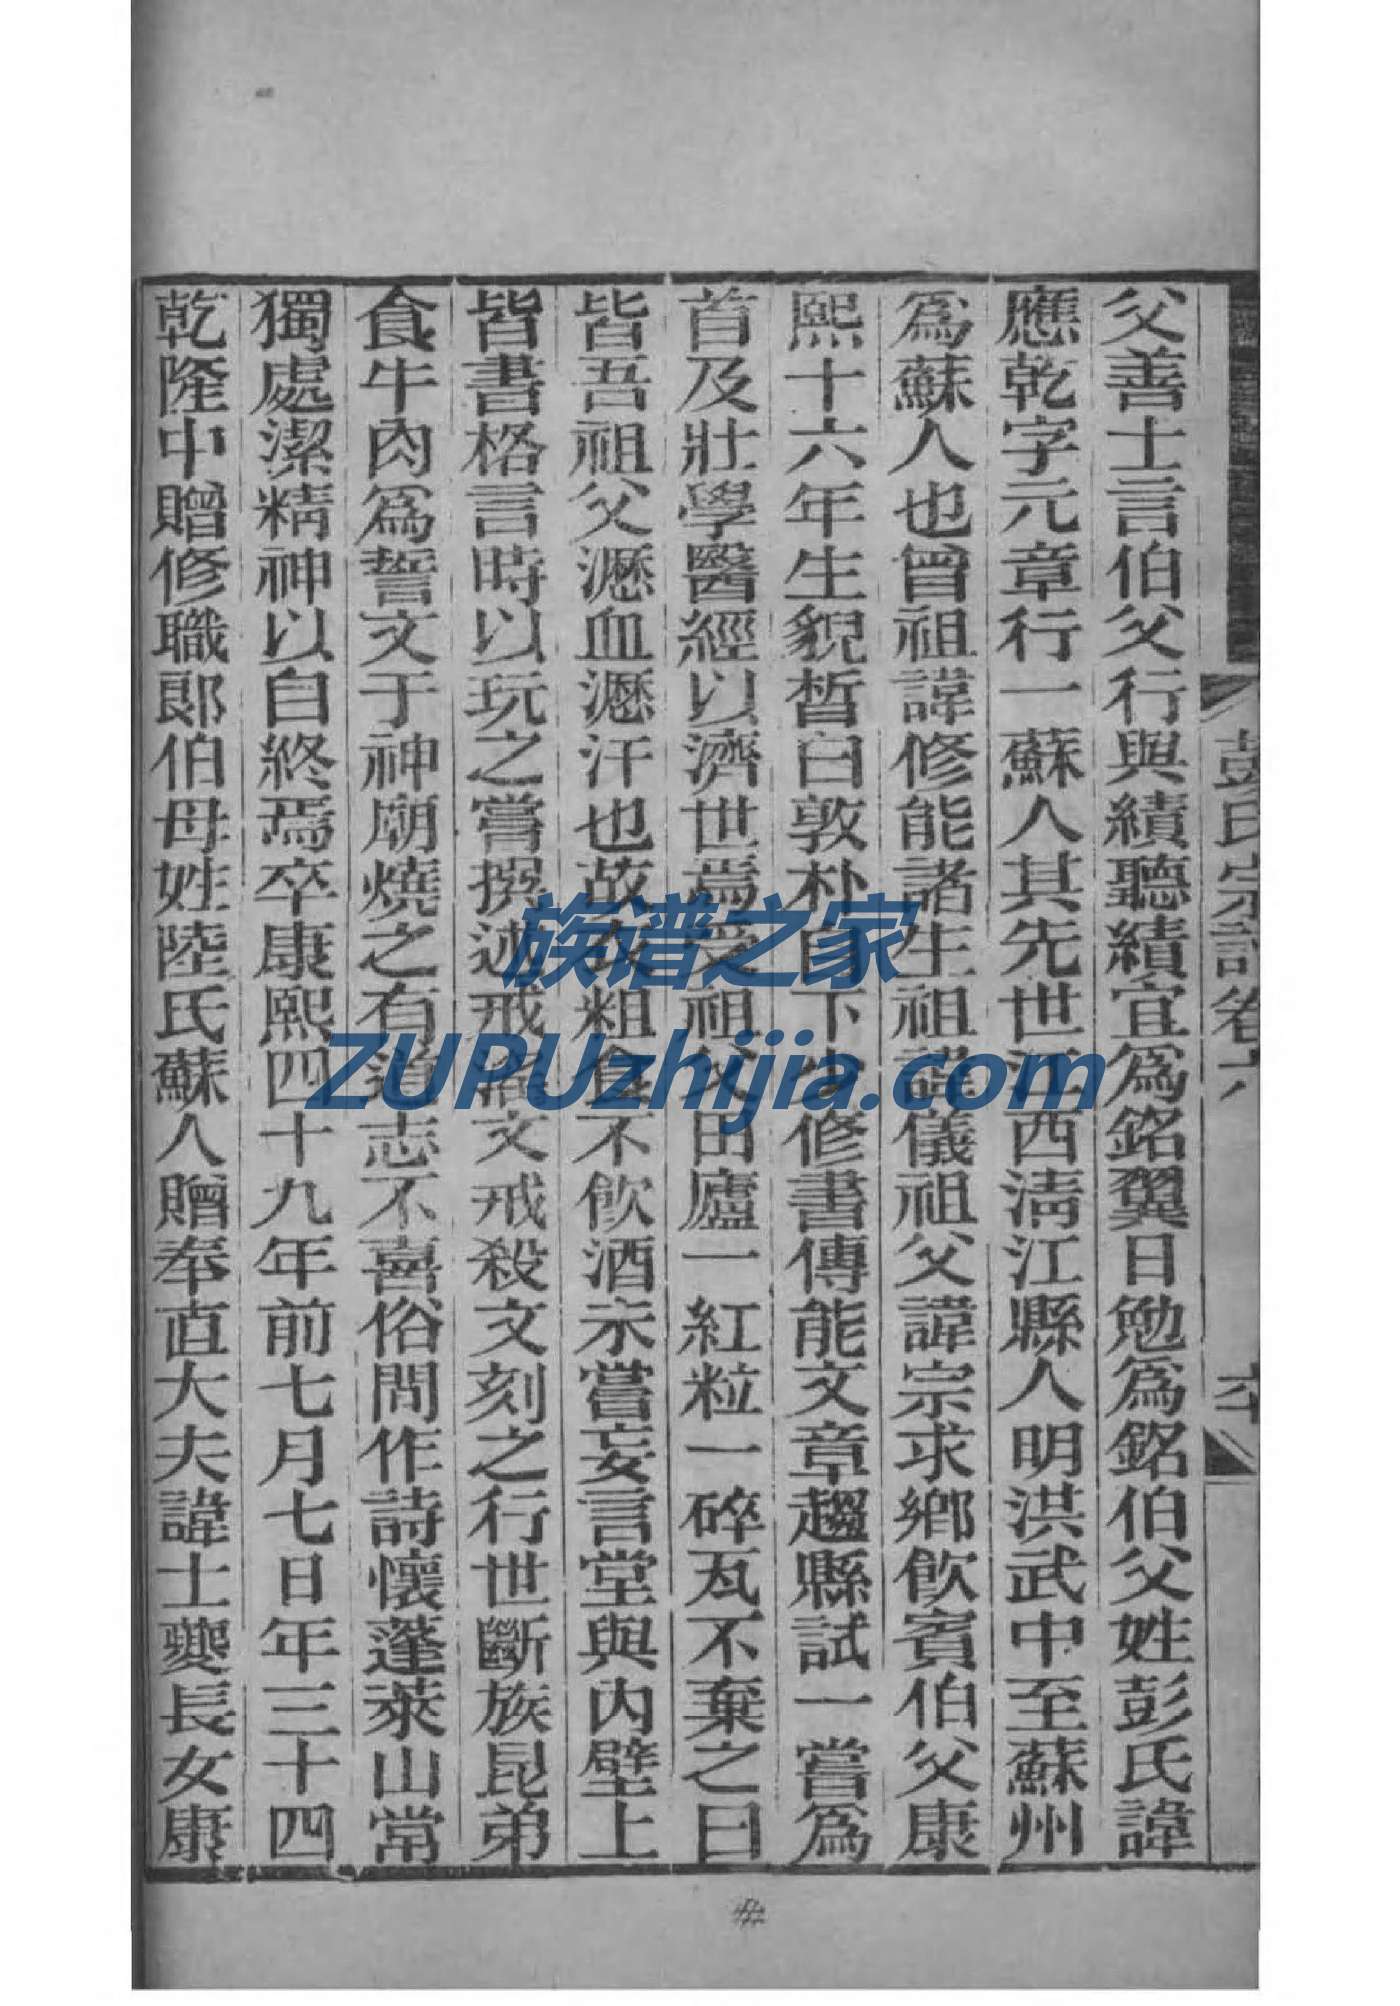 彭氏宗譜卷六
父善士言伯父行與績聽績宜爲銘翼日勉爲銘伯父姓彭氏諱
應乾字元章行一蘇人其先世江西淸江縣人明洪武中至蘇州
爲蘇人也曾祖諱修能諸生祖諱儀祖父諱宗求鄉飮賓伯父康
熙十六年生貌皙白敦朴自下少修書傳能文章趨縣試一嘗爲
首及壯學醫經以濟世焉受祖父田廬一紅粒一碎瓦不棄之曰
皆吾祖父瀝血瀝汗也故衣粗食不飮酒未嘗妄言堂與內壁上
皆書格言時以玩之嘗撰述戒淫文戒殺文刻之行世斷族昆弟
食牛肉爲誓文于神廟燒之有道志不喜俗間作詩懷蓬萊山常
獨處潔精神以自終焉卒康熙四十九年前七月七日年三十四
乾隆中贈修職郎伯母姓陸氏蘇人贈奉直大夫諱士夔長女康
族谱之家
ZUPUzhijia.com